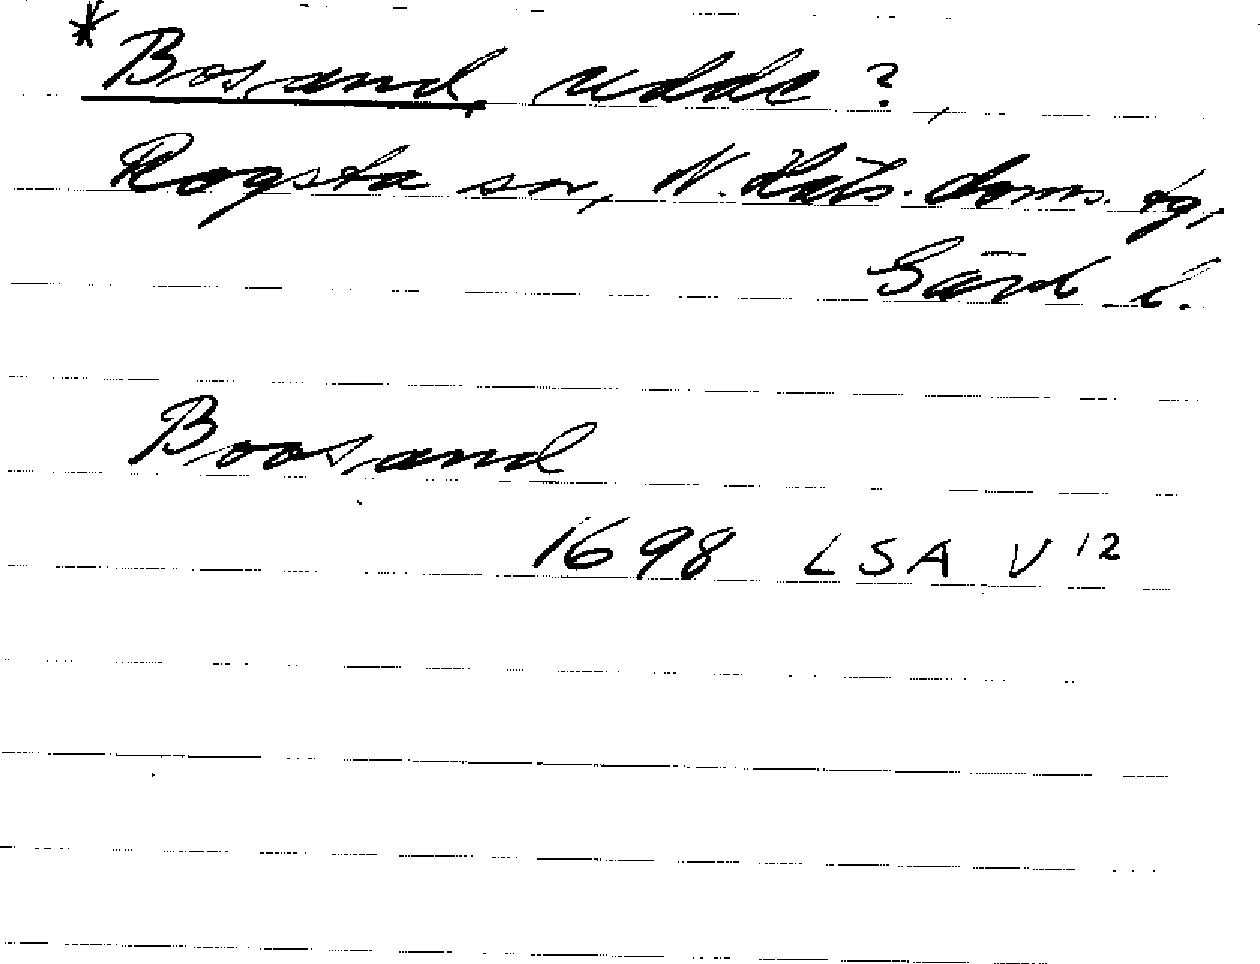 *Bosand, udde?,
Rogsta sn, N. Häls. doms. tg,
Gävleb l.
Boosand
1698 LSA V 12